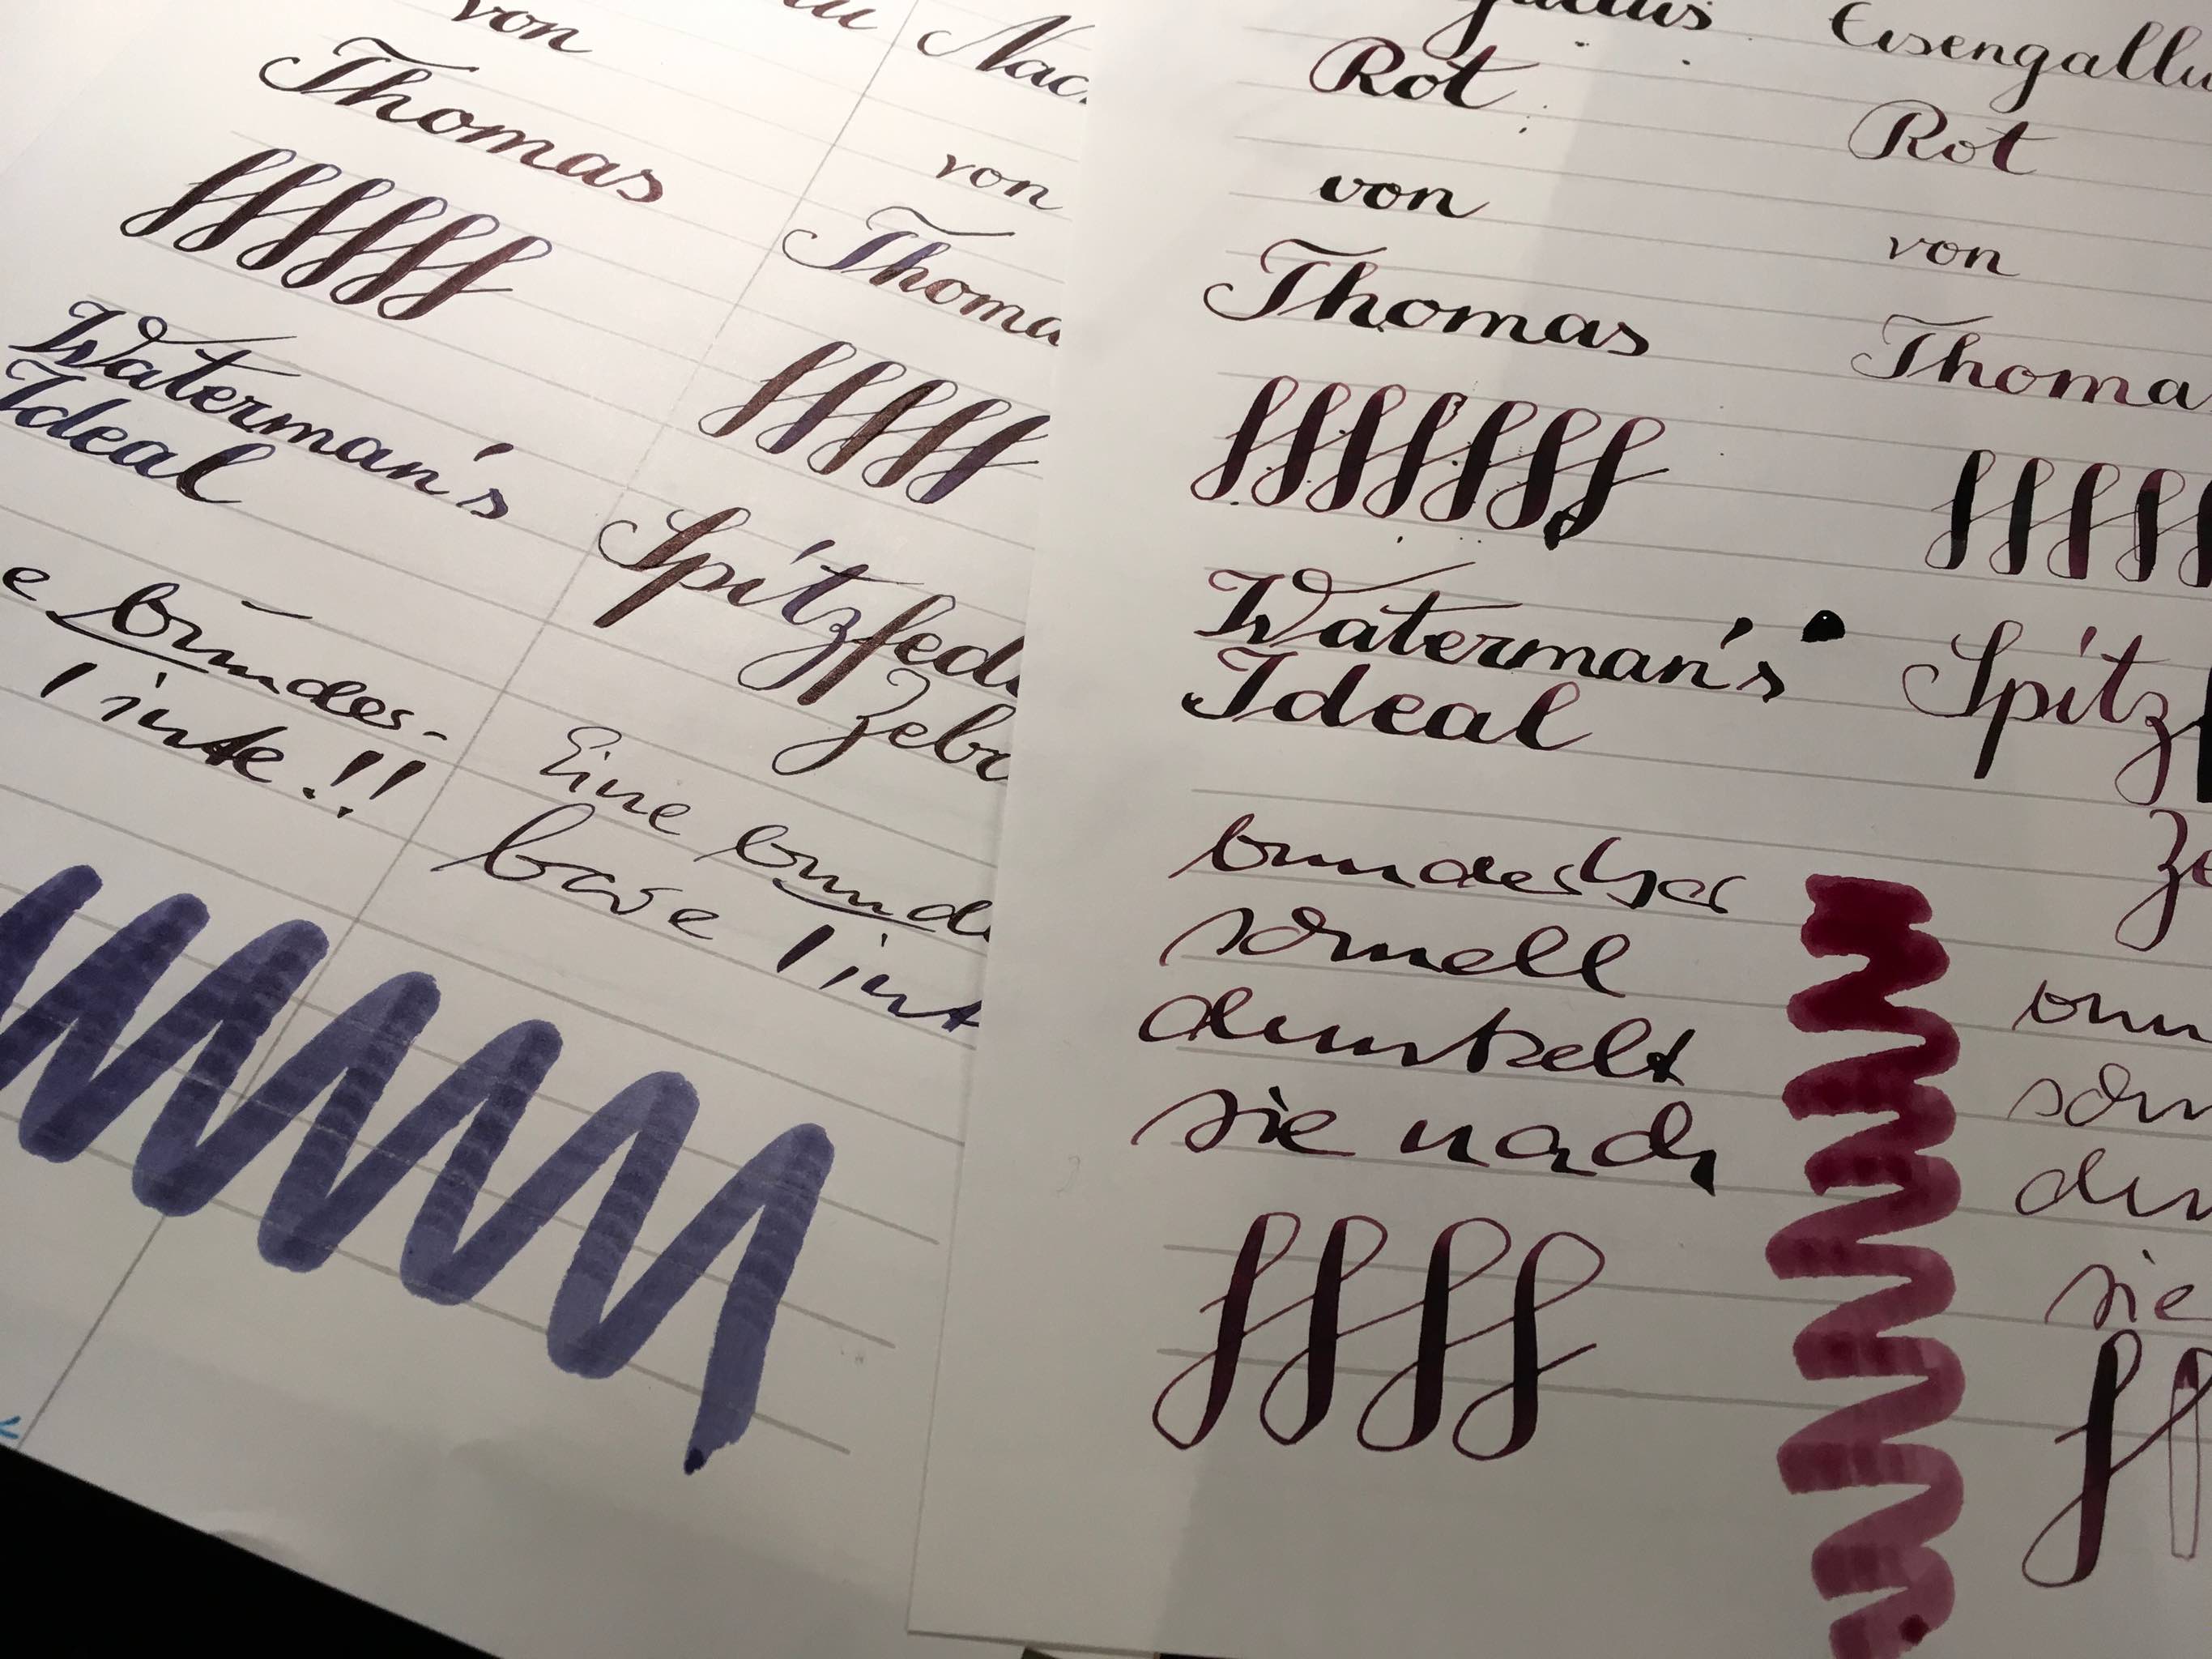 von
Thomas
ffffff
Waterman's
Ideal
e wunder-
Tinte!!
Nac
von
Thoma
fffff
Spitzfed
Zebr
Eine wund
bare Tint
gallus
Rot
von
Thomas
fffffff
Waterman's
Ideal
wunderbar
schnell
dunkelt
sie nach
ffff
Eisengallu
Rot
von
Thoma
fffff
Spitz
Ze
wun
schn
du
sie